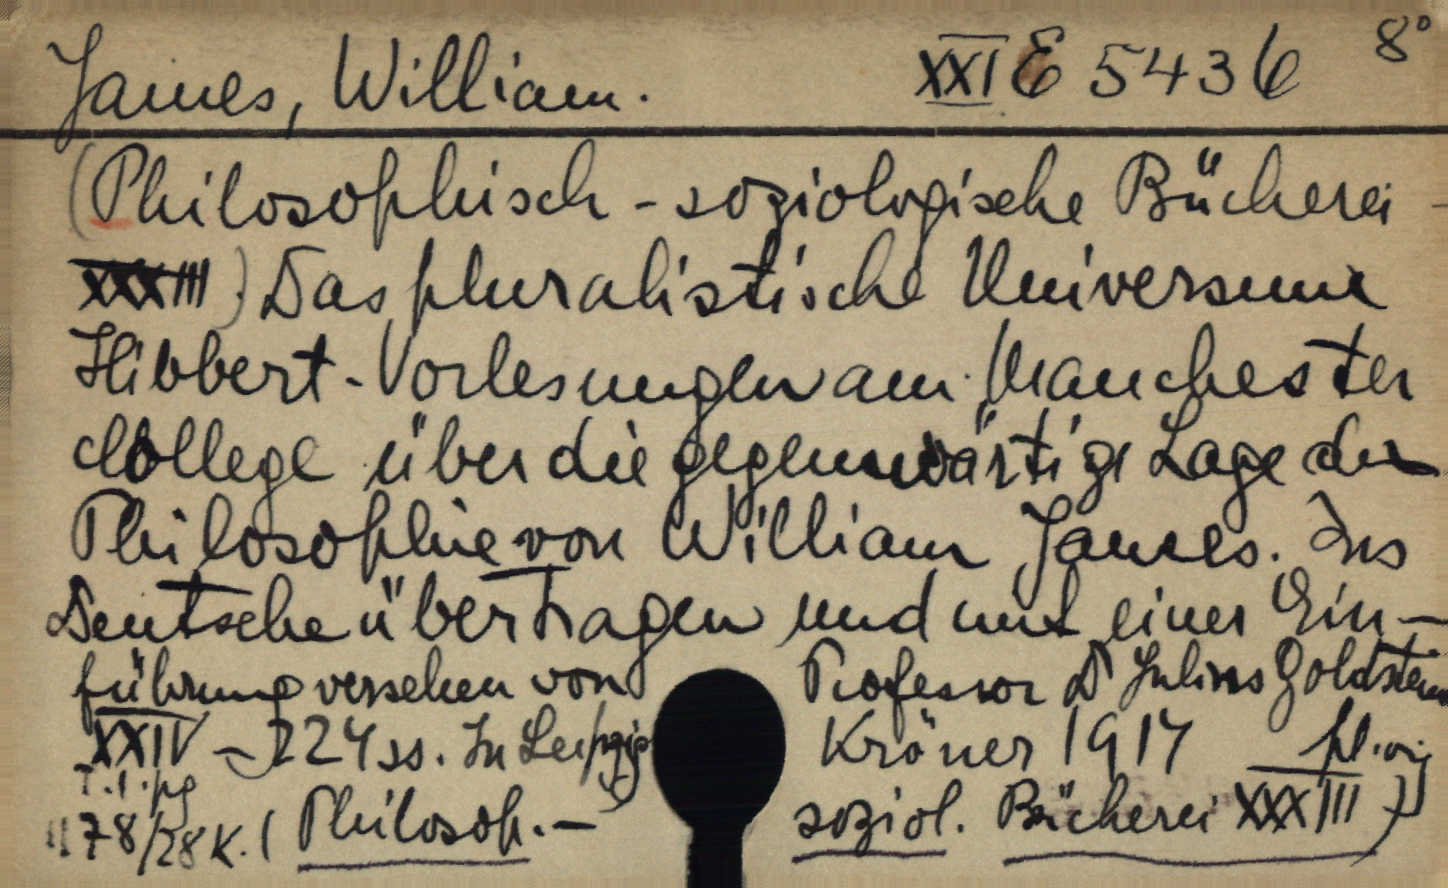 James, William. XXI E 5436 8°
(Philosophisch-soziologische Bücherei -
XXXIII) Das pluralistische Universum
Hibbert-Vorlesungen am Manchester
College über die gegenwärtige Lage der
Philosophie von William James. Ins
Deutsche übertragen und mit einer Ein-
führung versehen von Professor Dr Julius Goldstein
XXIV - 224 ss. In Leipzig Kröner 1914
78/28 K. (Philosoph. - soziol. Bücherei XXXIII)